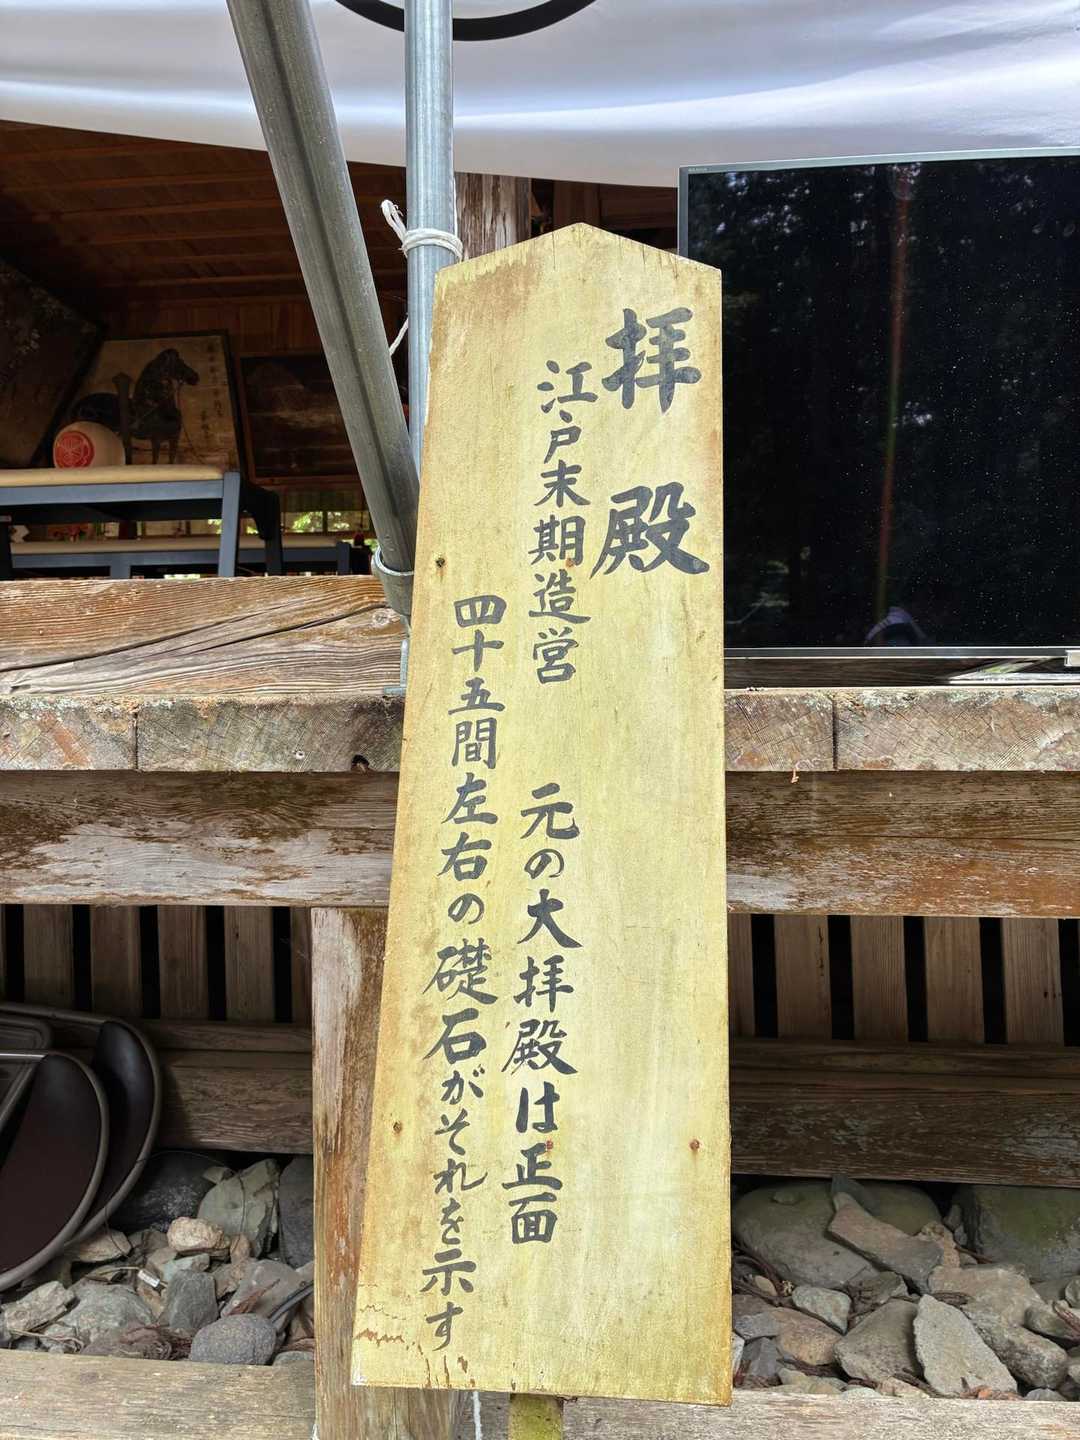 拝殿
江戸末期造営　元の大拝殿は正面
四十五間左右の礎石がそれを示す